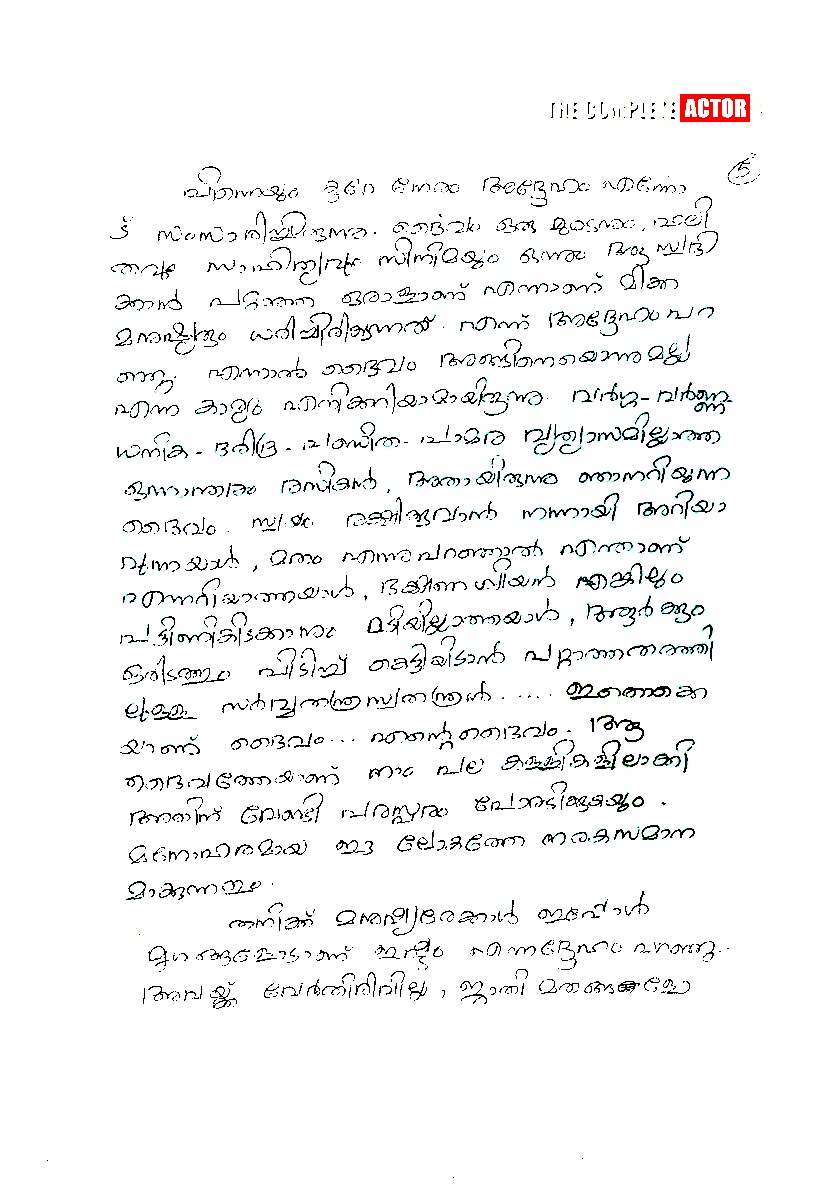 THE COMPLETE ACTOR
5
പിന്നെയും കുറേ നേരം അദ്ദേഹം എന്നോ
ട് സംസാരിച്ചിരുന്നു. ദൈവം ഒരു മൂടനും, ഫലി
തവും സാഹിത്യവും സിനിമയും ഒന്നും ആസ്വദി
ക്കാൻ പറ്റാത്ത ഒരാളാണ് എന്നാണ് മിക്ക
മനുഷ്യരും ധരിച്ചിരിക്കുന്നത്. എന്ന് അദ്ദേഹം പറ
ഞ്ഞു. എന്നാൽ ദൈവം അങ്ങിനെയൊന്നുമല്ല
എന്ന കാര്യം എനിക്കറിയാമായിരുന്നു. വർഗ്ഗ-വർണ്ണ
ധനിക - ദരിദ്ര - പണ്ഡിത - പാമര വ്യത്യാസമില്ലാത്ത
ഒന്നാന്തരം രസികൻ, അതായിരുന്നു ഞാനറിയുന്ന
ദൈവം. സ്വയം രക്ഷിക്കുവാൻ നന്നായി അറിയാ
വുന്നയാൾ, മതം എന്നുപറഞ്ഞാൽ എന്താണ്
എന്നറിയാത്തയാൾ, ഭക്ഷണപ്രിയൻ എങ്കിലും
പട്ടിണികിടക്കാനും മടിയില്ലാത്തയാൾ, ആർക്കും
ഒരിടത്തും പിടിച്ച് കെട്ടിയിടാൻ പറ്റാത്തതരത്തി
ലുള്ള സർവ്വതന്ത്രസ്വതന്ത്രൻ...... ഇതൊക്കെ
യാണ് ദൈവം... എന്റെ ദൈവം. ആ
ദൈവത്തേയാണ് നാം പല കള്ളികളിലാക്കി
അതിന് വേണ്ടി പരസ്പരം പോരടിക്കുകയും.
മനോഹരമായ ഈ ലോകത്തേ നരകസമാന
മാക്കുന്നതും.
തനിക്ക് മനുഷ്യരേക്കാൾ ഇപ്പോൾ
മൃഗങ്ങളോടാണ് ഇഷ്ടം എന്നദ്ദേഹം പറഞ്ഞു..
അവയ്ക്ക് വേർതിരിവില്ല, ജാതി മതങ്ങളോ